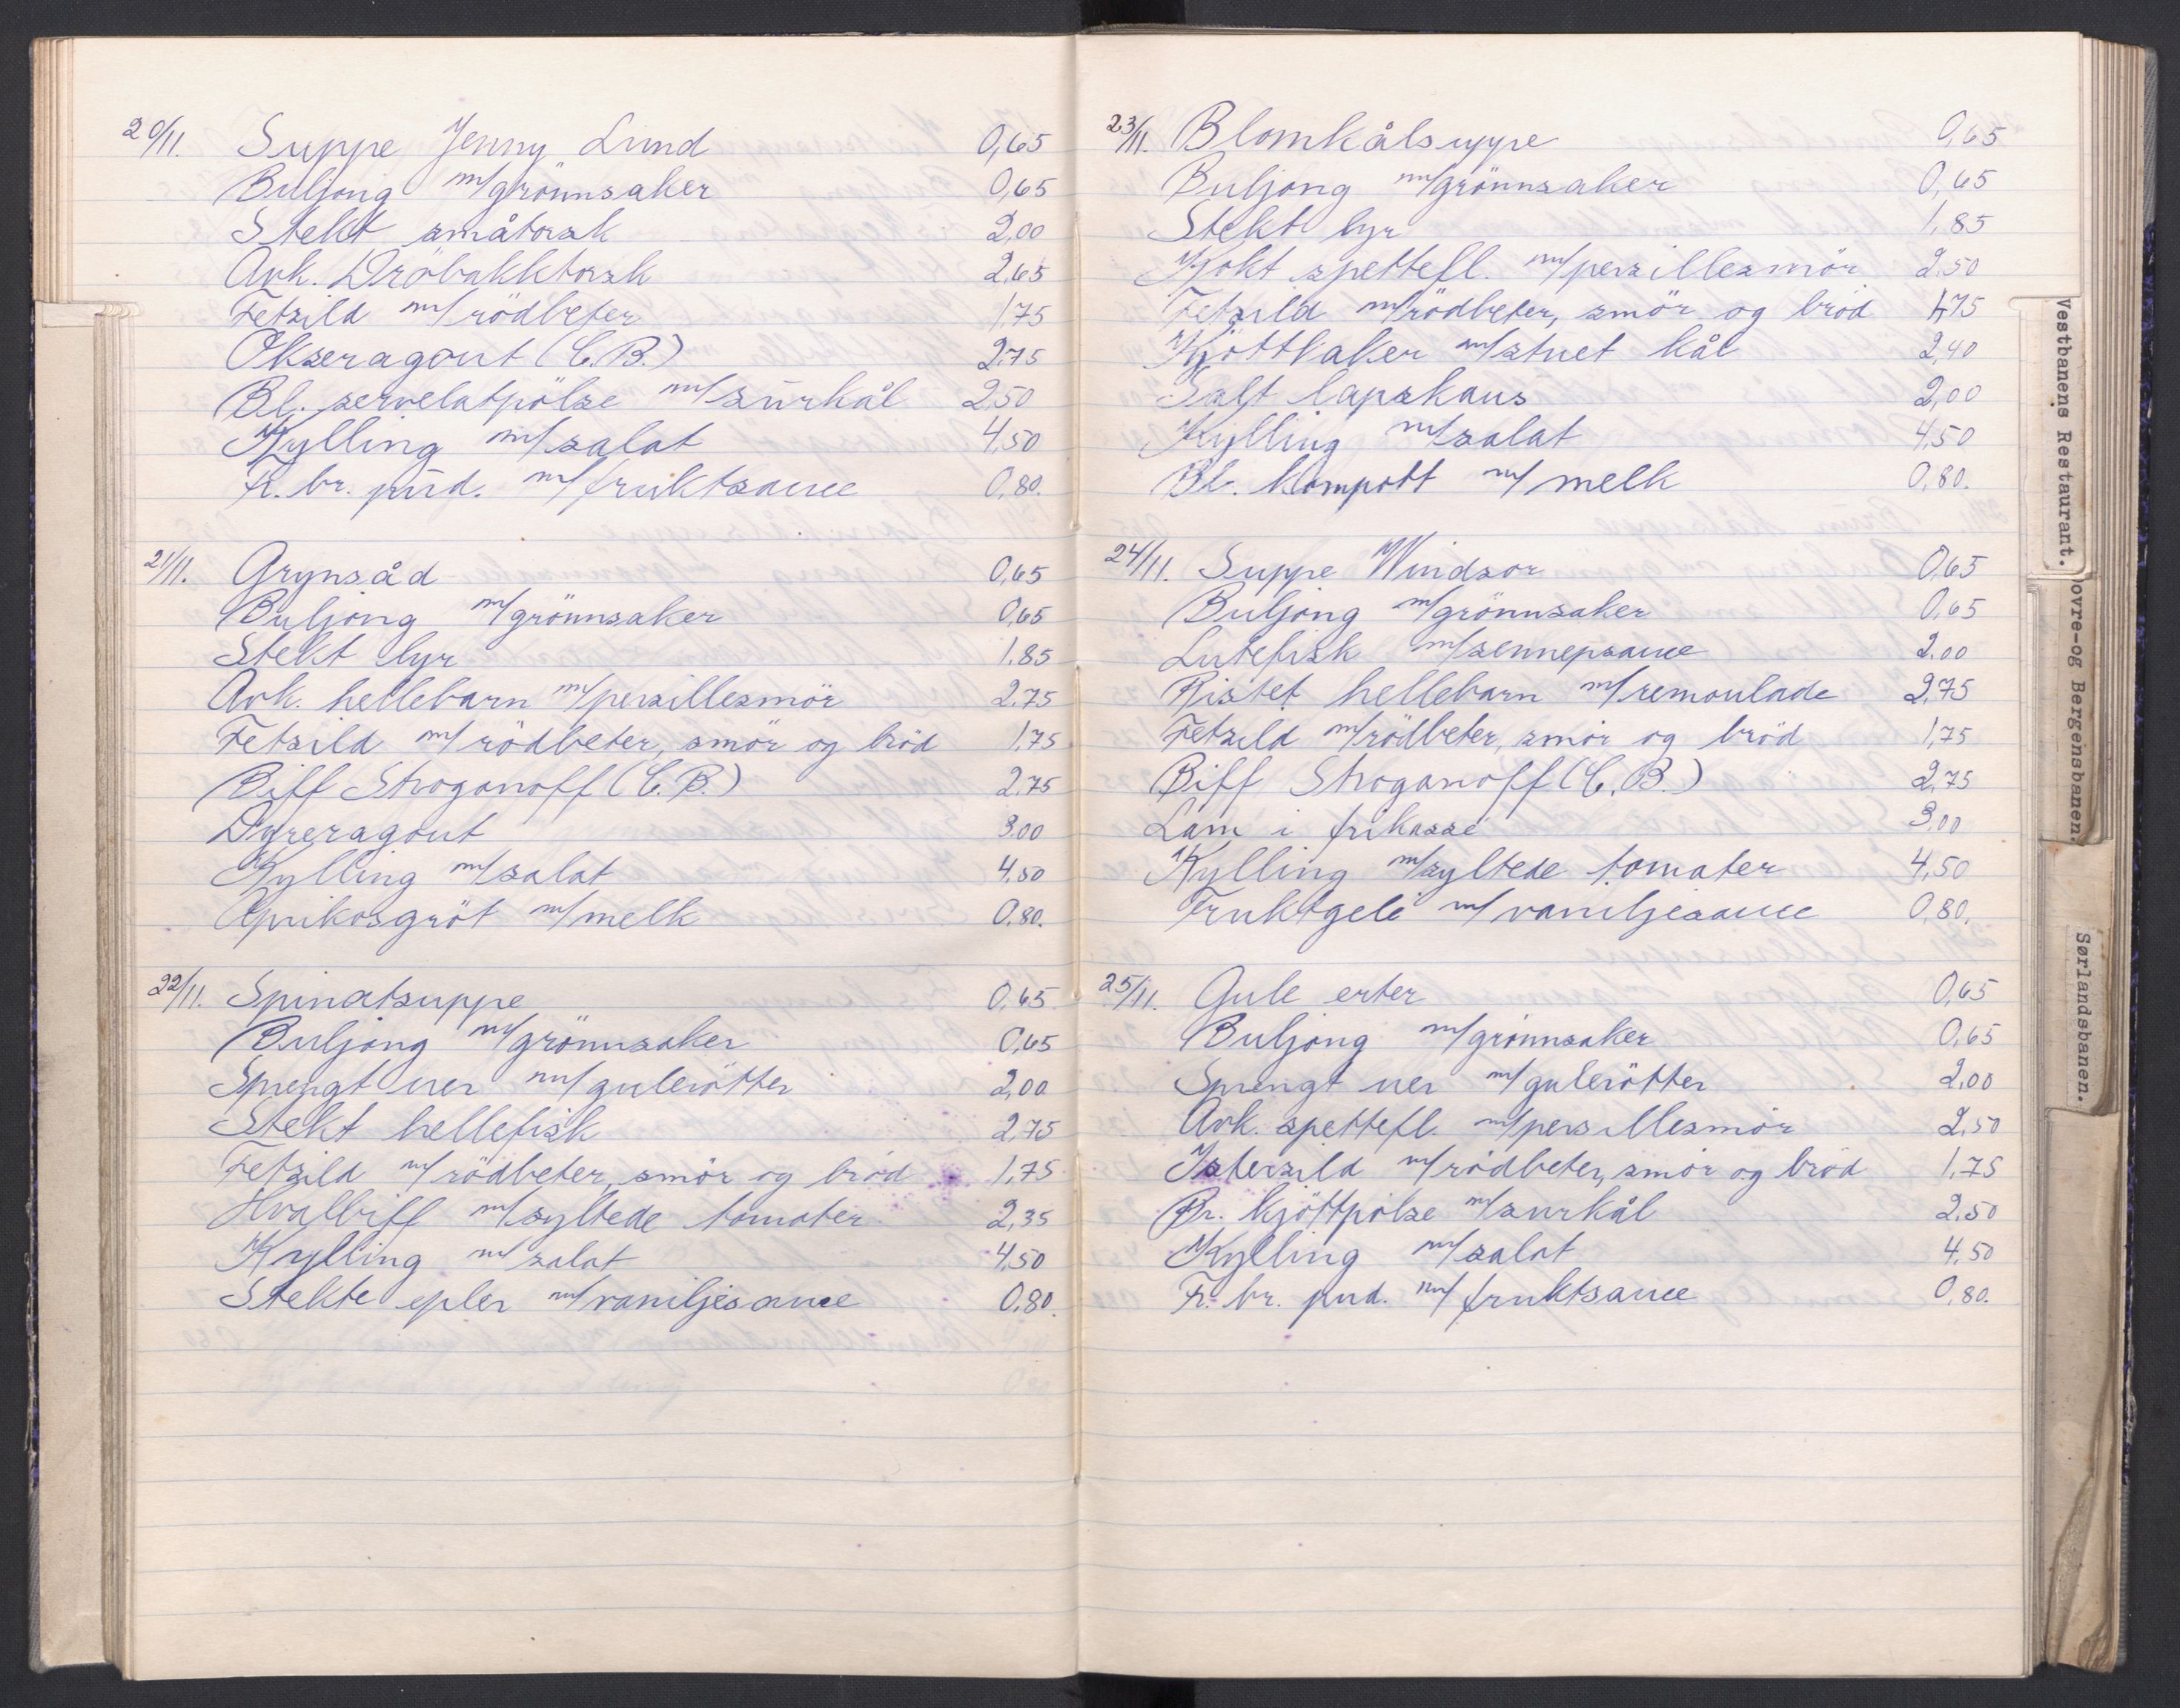 20/11. Suppe Jenny Lind 0,65
Buljong m/grönnsaker 0,65
Stekt småtorsk 2,00
Avk. Dröbakktorsk 2,65
Fetsild m/rödbeter 1,75
Okseragout (C.B.) 2,75
Bl. servelatpölse m/surkål 2,50
Kylling m/salat 4,50
Fr. br. pud. m/fruktsauce 0,80.
21/11. Grynsåd 0,65
Buljong m/grönnsaker 0,65
Stekt lyr 1.85
Avk. hellebarn m/persillesmör 2.75
Fetsild m/rödbeter, smör og bröd 1,75
Biff Stroganoff (C.B.) 2,75
Dyreragout 3.00
Kylling m/salat 4,50
Aprikosgröt m/melk 0,80.
22/11. Spinatsuppe 0,65
Buljong m/grönnsaker 0,65
Sprengt uer m/gulerötter 2,00
Stekt hellefisk 2,75
Fetsild m/rödbeter, smör og bröd 1,75
Hvalbiff m/syltede tomater 2,35
Kylling m/salat 4,50
Stekte epler m/vaniljesauce 0,80.
23/11. Blomkålsuppe 0,65
Buljong m/grönnsaker 0,65
Stekt lyr 1,85
Kokt spettefl. m/persillesmör 2,50
Fetsild m/rödbeter, smör og bröd 1,75
Kjöttkaker m/stuet kål 2,40
Salt lapskaus 2,00
Kylling m/salat 4,50
Bl. kompott m/melk 0,80.
24/11. Suppe Windsor 0,65
Buljong m/grönnsaker 0,65
Lutefisk m/sennepsauce 2.00
Ristet hellebarn m/remoulade 2,75
Fetsild m/rödbeter, smör og bröd 1,75
Biff Stroganoff (C.B.) 2,75
Lam i frikassé 3,00
Kylling m/syltede tomater 4,50
Fruktgelé m/vaniljesauce 0,80.
25/11. Gule erter 0,65
Buljong m/grönnsaker 0,65
Sprengt uer m/gulerötter 2,00
Avk. spettefl. m/persillesmör 2,50
Istersild m/rödbeter, smör og bröd 1,75
Br. kjöttpölse m/surkål 2.50
Kylling m/salat 4,50
Fr. br. pud. m/fruktsauce 0,80.
Vestbanens Restaurant.
ovre-og Bergensbanen.
Sørlandsbanen.